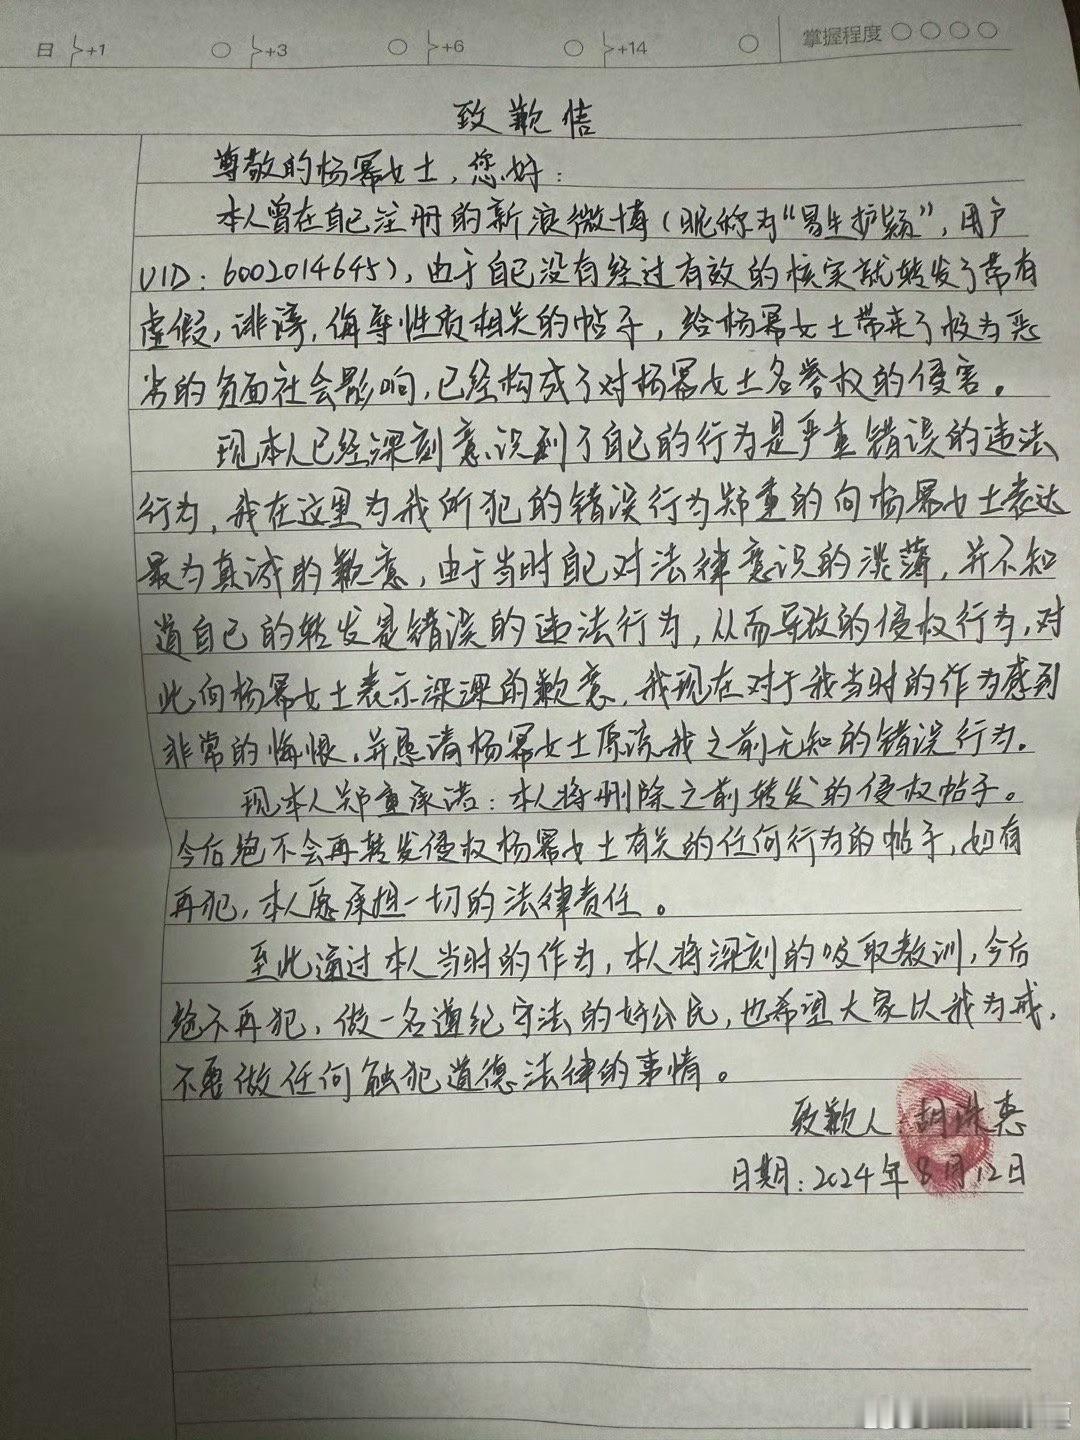 日 +1 +3 +6 +14 掌握程度
致歉信
尊敬的杨幂女士，您好：
本人曾在自己注册的新浪微博（昵称为“易生护颖”，用户
UID：6002014645），由于自己没有经过有效的核实就转发了带有
虚假，诽谤，侮辱性质相关的帖子，给杨幂女士带来了极为恶
劣的负面社会影响，已经构成了对杨幂女士名誉权的侵害。
现本人已经深刻意识到了自己的行为是严重错误的违法
行为，我在这里为我所犯的错误行为郑重的向杨幂女士表达
最为真诚的歉意，由于当时自己对法律意识的淡薄，并不知
道自己的转发是错误的违法行为，从而导致的侵权行为，对
此向杨幂女士表示深深的歉意，我现在对于我当时的作为感到
非常的悔恨，并恳请杨幂女士原谅我之前无知的错误行为。
现本人郑重承诺：本人将删除之前转发的侵权帖子。
今后绝不会再转发侵权杨幂女士有关的任何行为的帖子，如有
再犯，本人愿承担一切的法律责任。
至此通过本人当时的作为，本人将深刻的吸取教训，今后
绝不再犯，做一名遵纪守法的好公民，也希望大家以我为戒，
不要做任何触犯道德法律的事情。
致歉人：胡惠
日期：2024年8月12日